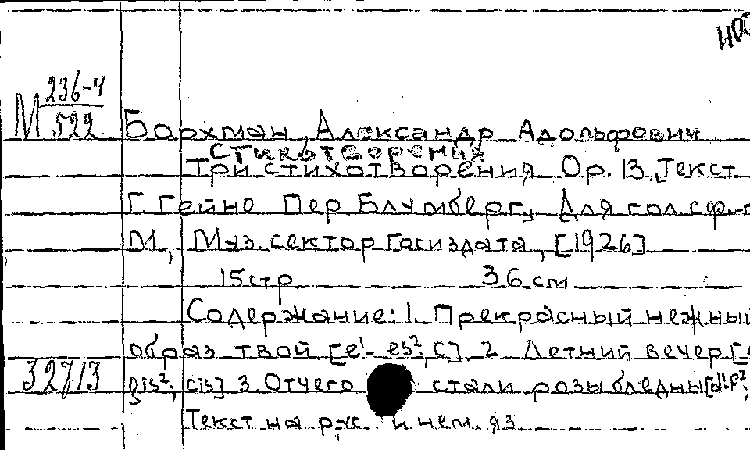 нот
М 236-4
522
Бархман, Александр Адольфович
Стихотворения
Три стихотворения Op. 13. Текст
Г. Гейне Пер Блумберг. Для гол с ф-п
М, Муз. сектор Госиздата, [1926]
15 стр 36 см
Содержание: 1. Прекрасный нежный
образ твой [e¹- es², c]. 2. Летний вечер [
gis²; cis] 3. Отчего стали розы бледны [
32713
Текст на рус. и нем. яз.